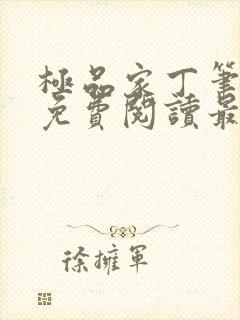 極品家丁筆
免費閱讀最
徐擁軍